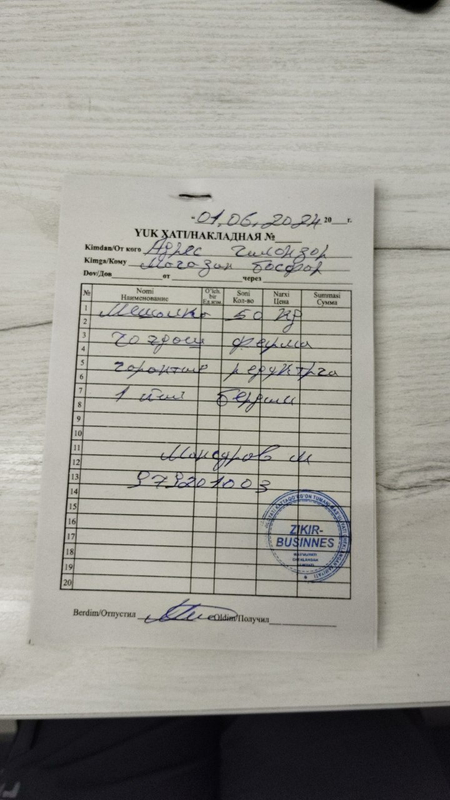 01.06.2024 20__г.
YUK XATI/НАКЛАДНАЯ №____
Kimdan/От кого Адрес чилонзор
Kimga/Кому Магазин босфор
Dov/Дов________от________через________
№ Nomi Наименование O'lch. bir Ед.изм. Soni Кол-во Narxi Цена Summasi Сумма
1 Мешалка 50 кг
2
3
4 ферма
5
6 гарантия редукторга
7
8 1 йил бердим
9
10
11
12 Мансуров м
13 979201003
14
15
16
17
18
19
20
ZIKIR-BUSINNES
Berdim/Отпустил Oldim/Получил